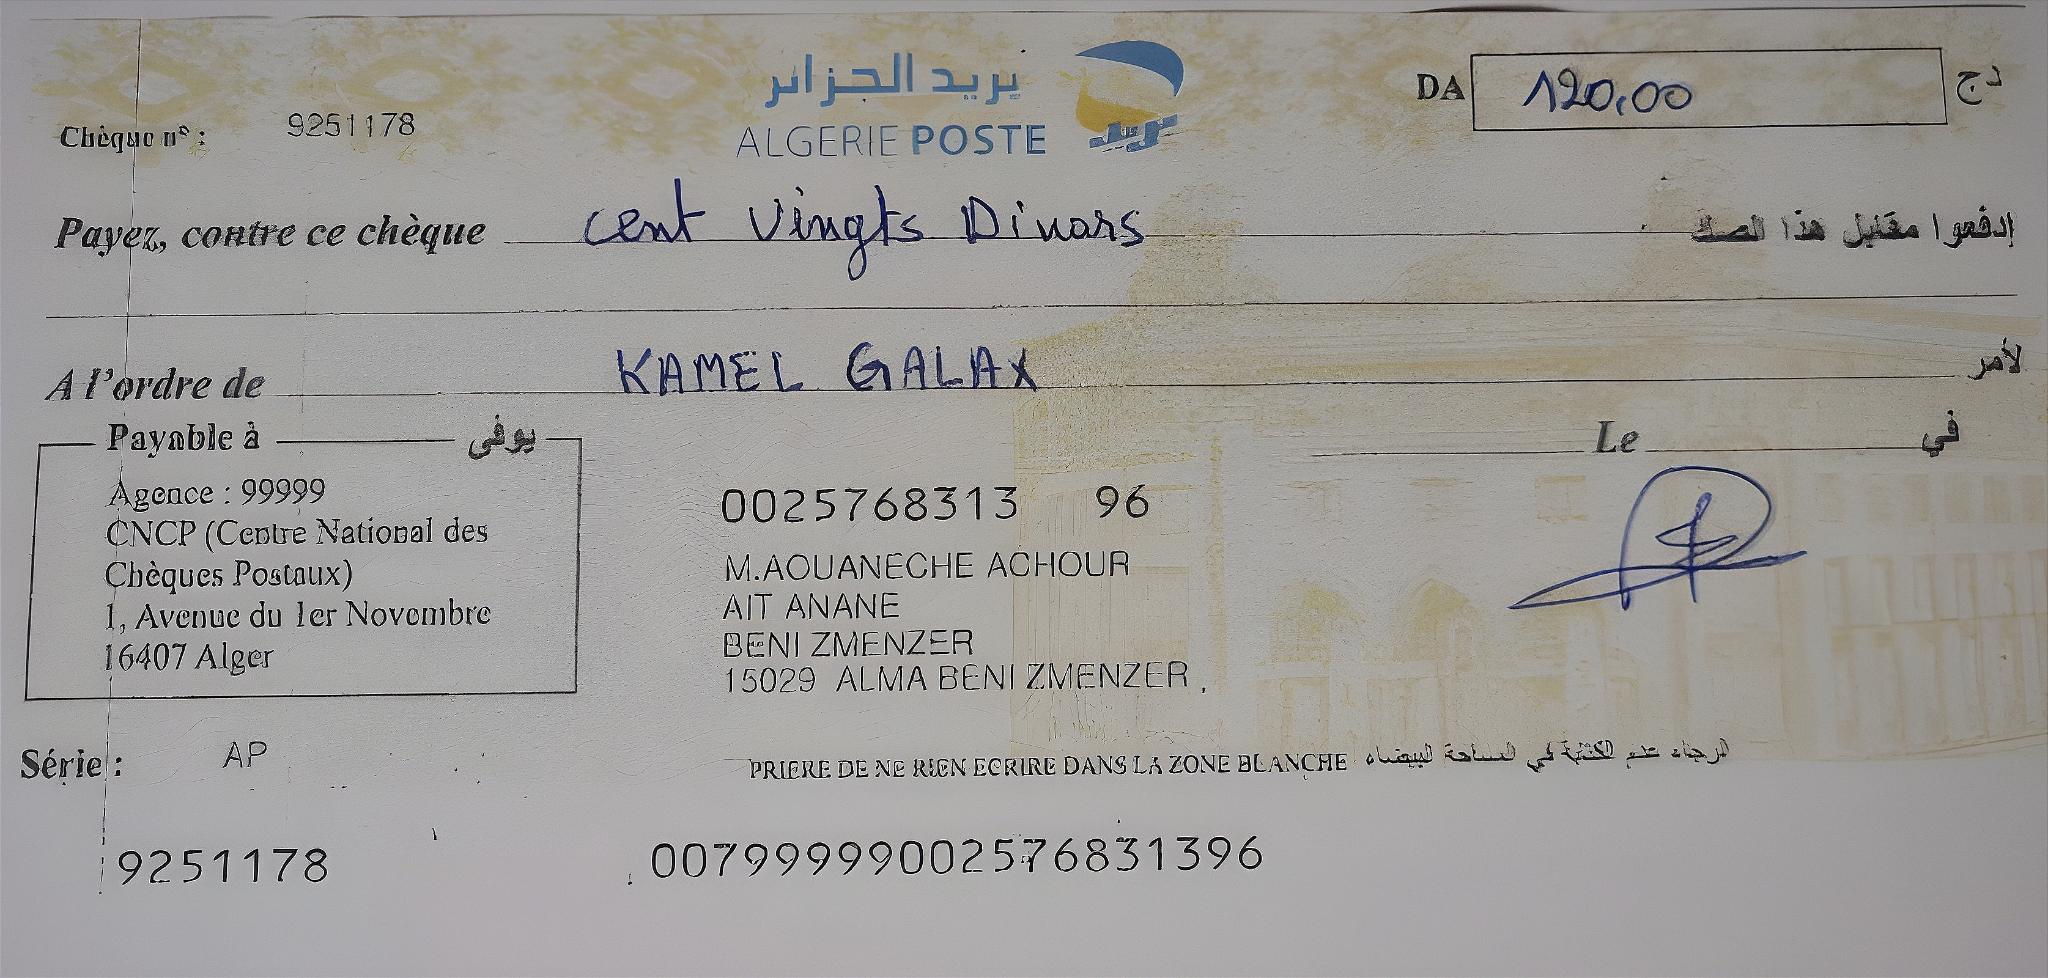 بريد الجزائر
ALGERIE POSTE
بريد
DA 120,00 دج
Chèque n° : 9251178
Payez, contre ce chèque cent vingts Dinars إدفعوا مقابل هذا الصك
A l'ordre de KAMEL GALAX لأمر
Payable à يوفى
Le في
Agence : 99999
CNCP (Centre National des
Chèques Postaux)
1, Avenue du 1er Novembre
16407 Alger
0025768313 96
M.AOUANECHE ACHOUR
AIT ANANE
BENI ZMENZER
15029 ALMA BENI ZMENZER
Série : AP
PRIERE DE NE RIEN ECRIRE DANS LA ZONE BLANCHE الرجاء عدم الكتابة في المساحة البيضاء
9251178 00799999002576831396